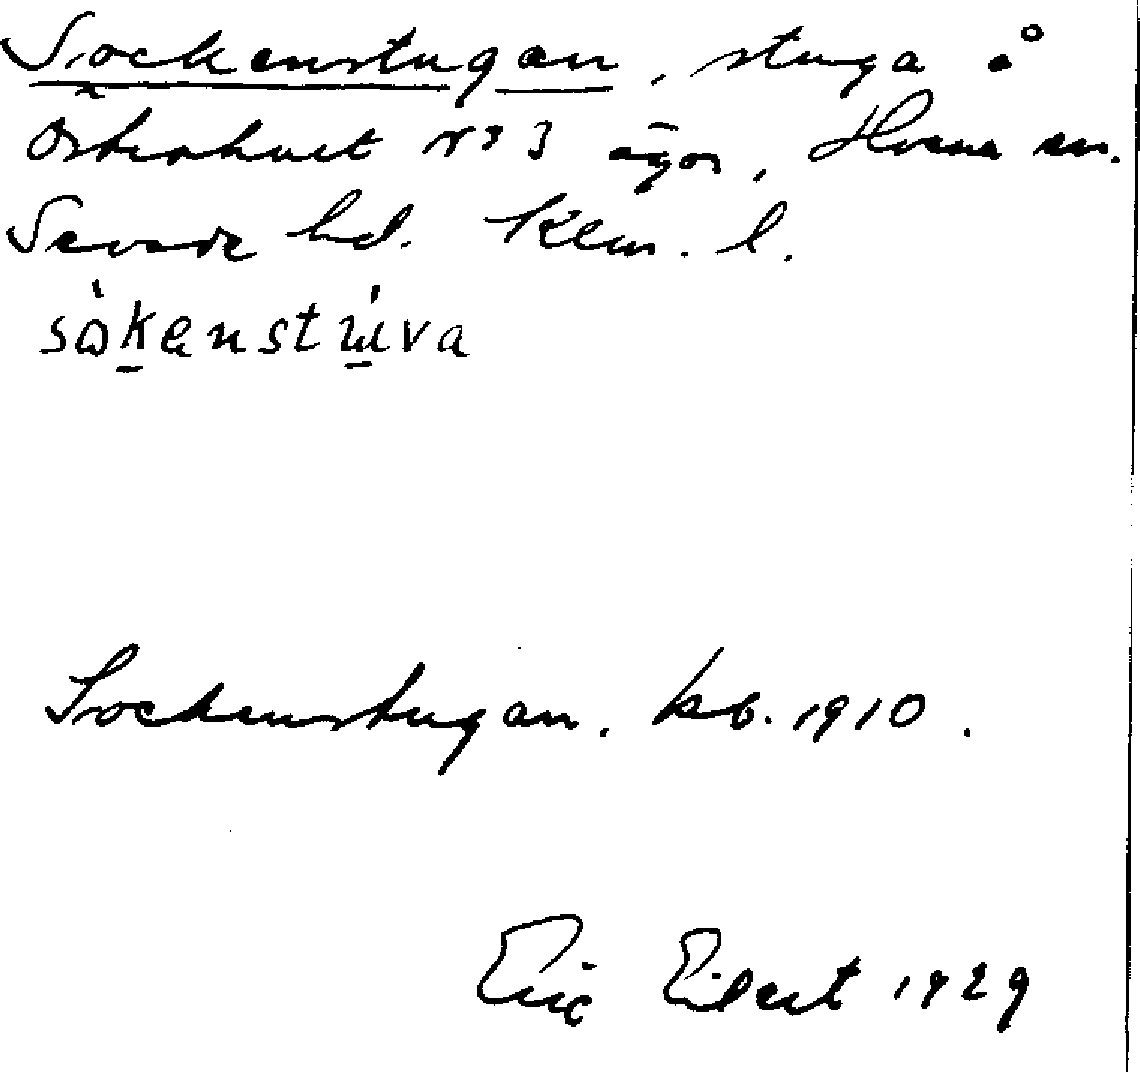 Sockenstugan, stuga å
Österarhult N:o 3 ägor, Horna sn.
Sevede hd. Klm. l.
sòkenstúva
Sockenstugan. kb. 1910.
Eric Elgert 1929